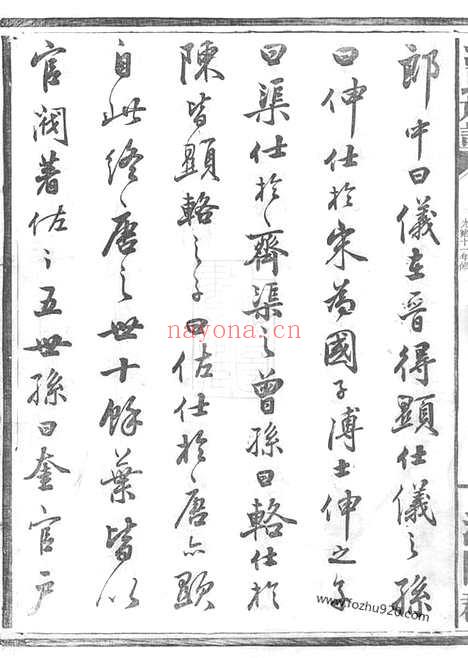 郎中曰儀在晉得顯仕儀之孫
曰伸仕於宋為國子博士伸之子
曰渠仕於齊渠之曾孫曰輅仕於
陳皆顯輅之子曰佐仕於唐亦顯
自此終唐之世十餘葉皆以
官閥著佐之五世孫曰奎官戶
nayona.cn
www.fozhu920.com